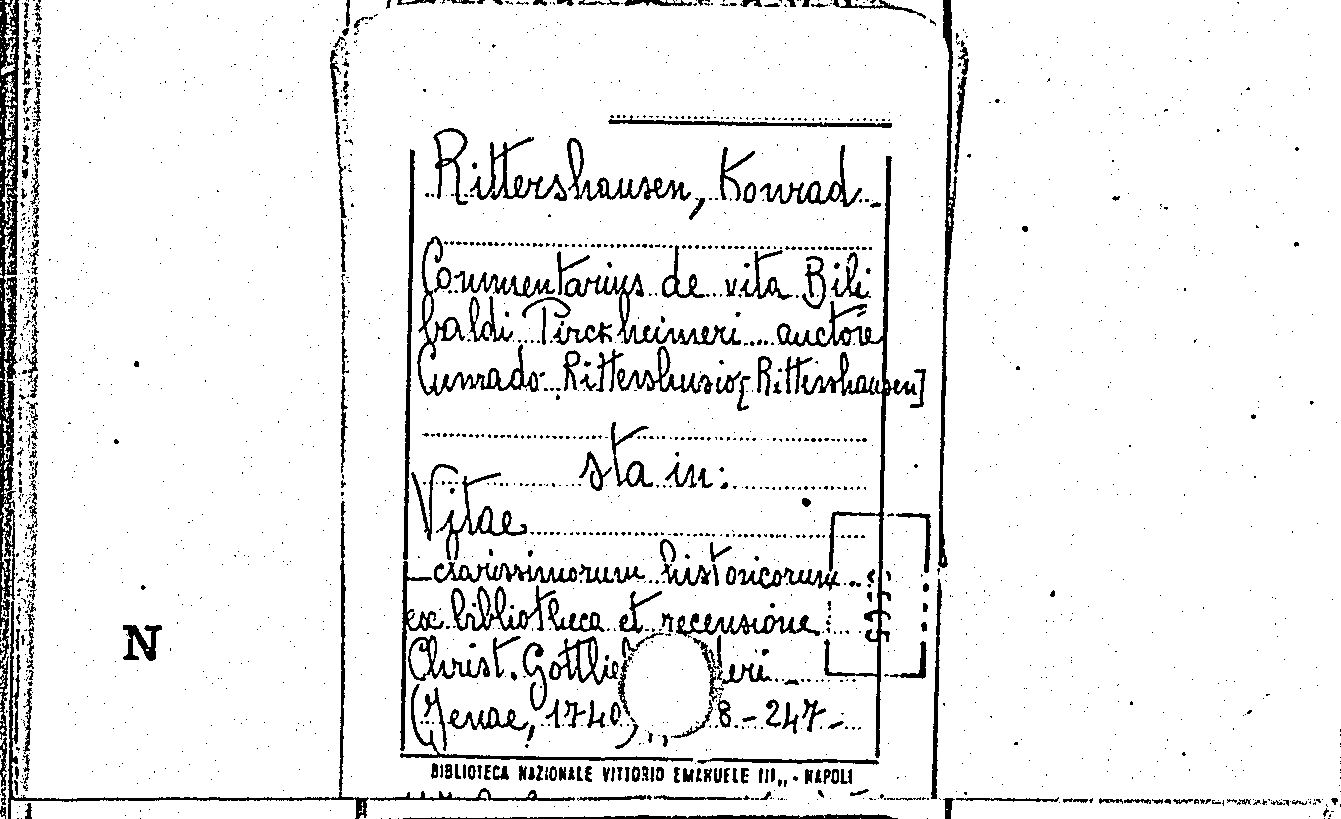 Rittershausen, Konrad.
Commentarius de vita Bili
baldi Pirckheimeri... auctore
Cunrado Rittershusio [Rittershausen]
sta in:
Vitae
clarissimorum historicorum
ex bibliotheca et recensione
Christ. Gottlie eri
(Jenae, 1740 8-247-
BIBLIOTECA NAZIONALE VITTORIO EMANUELE III,, - NAPOLI
N